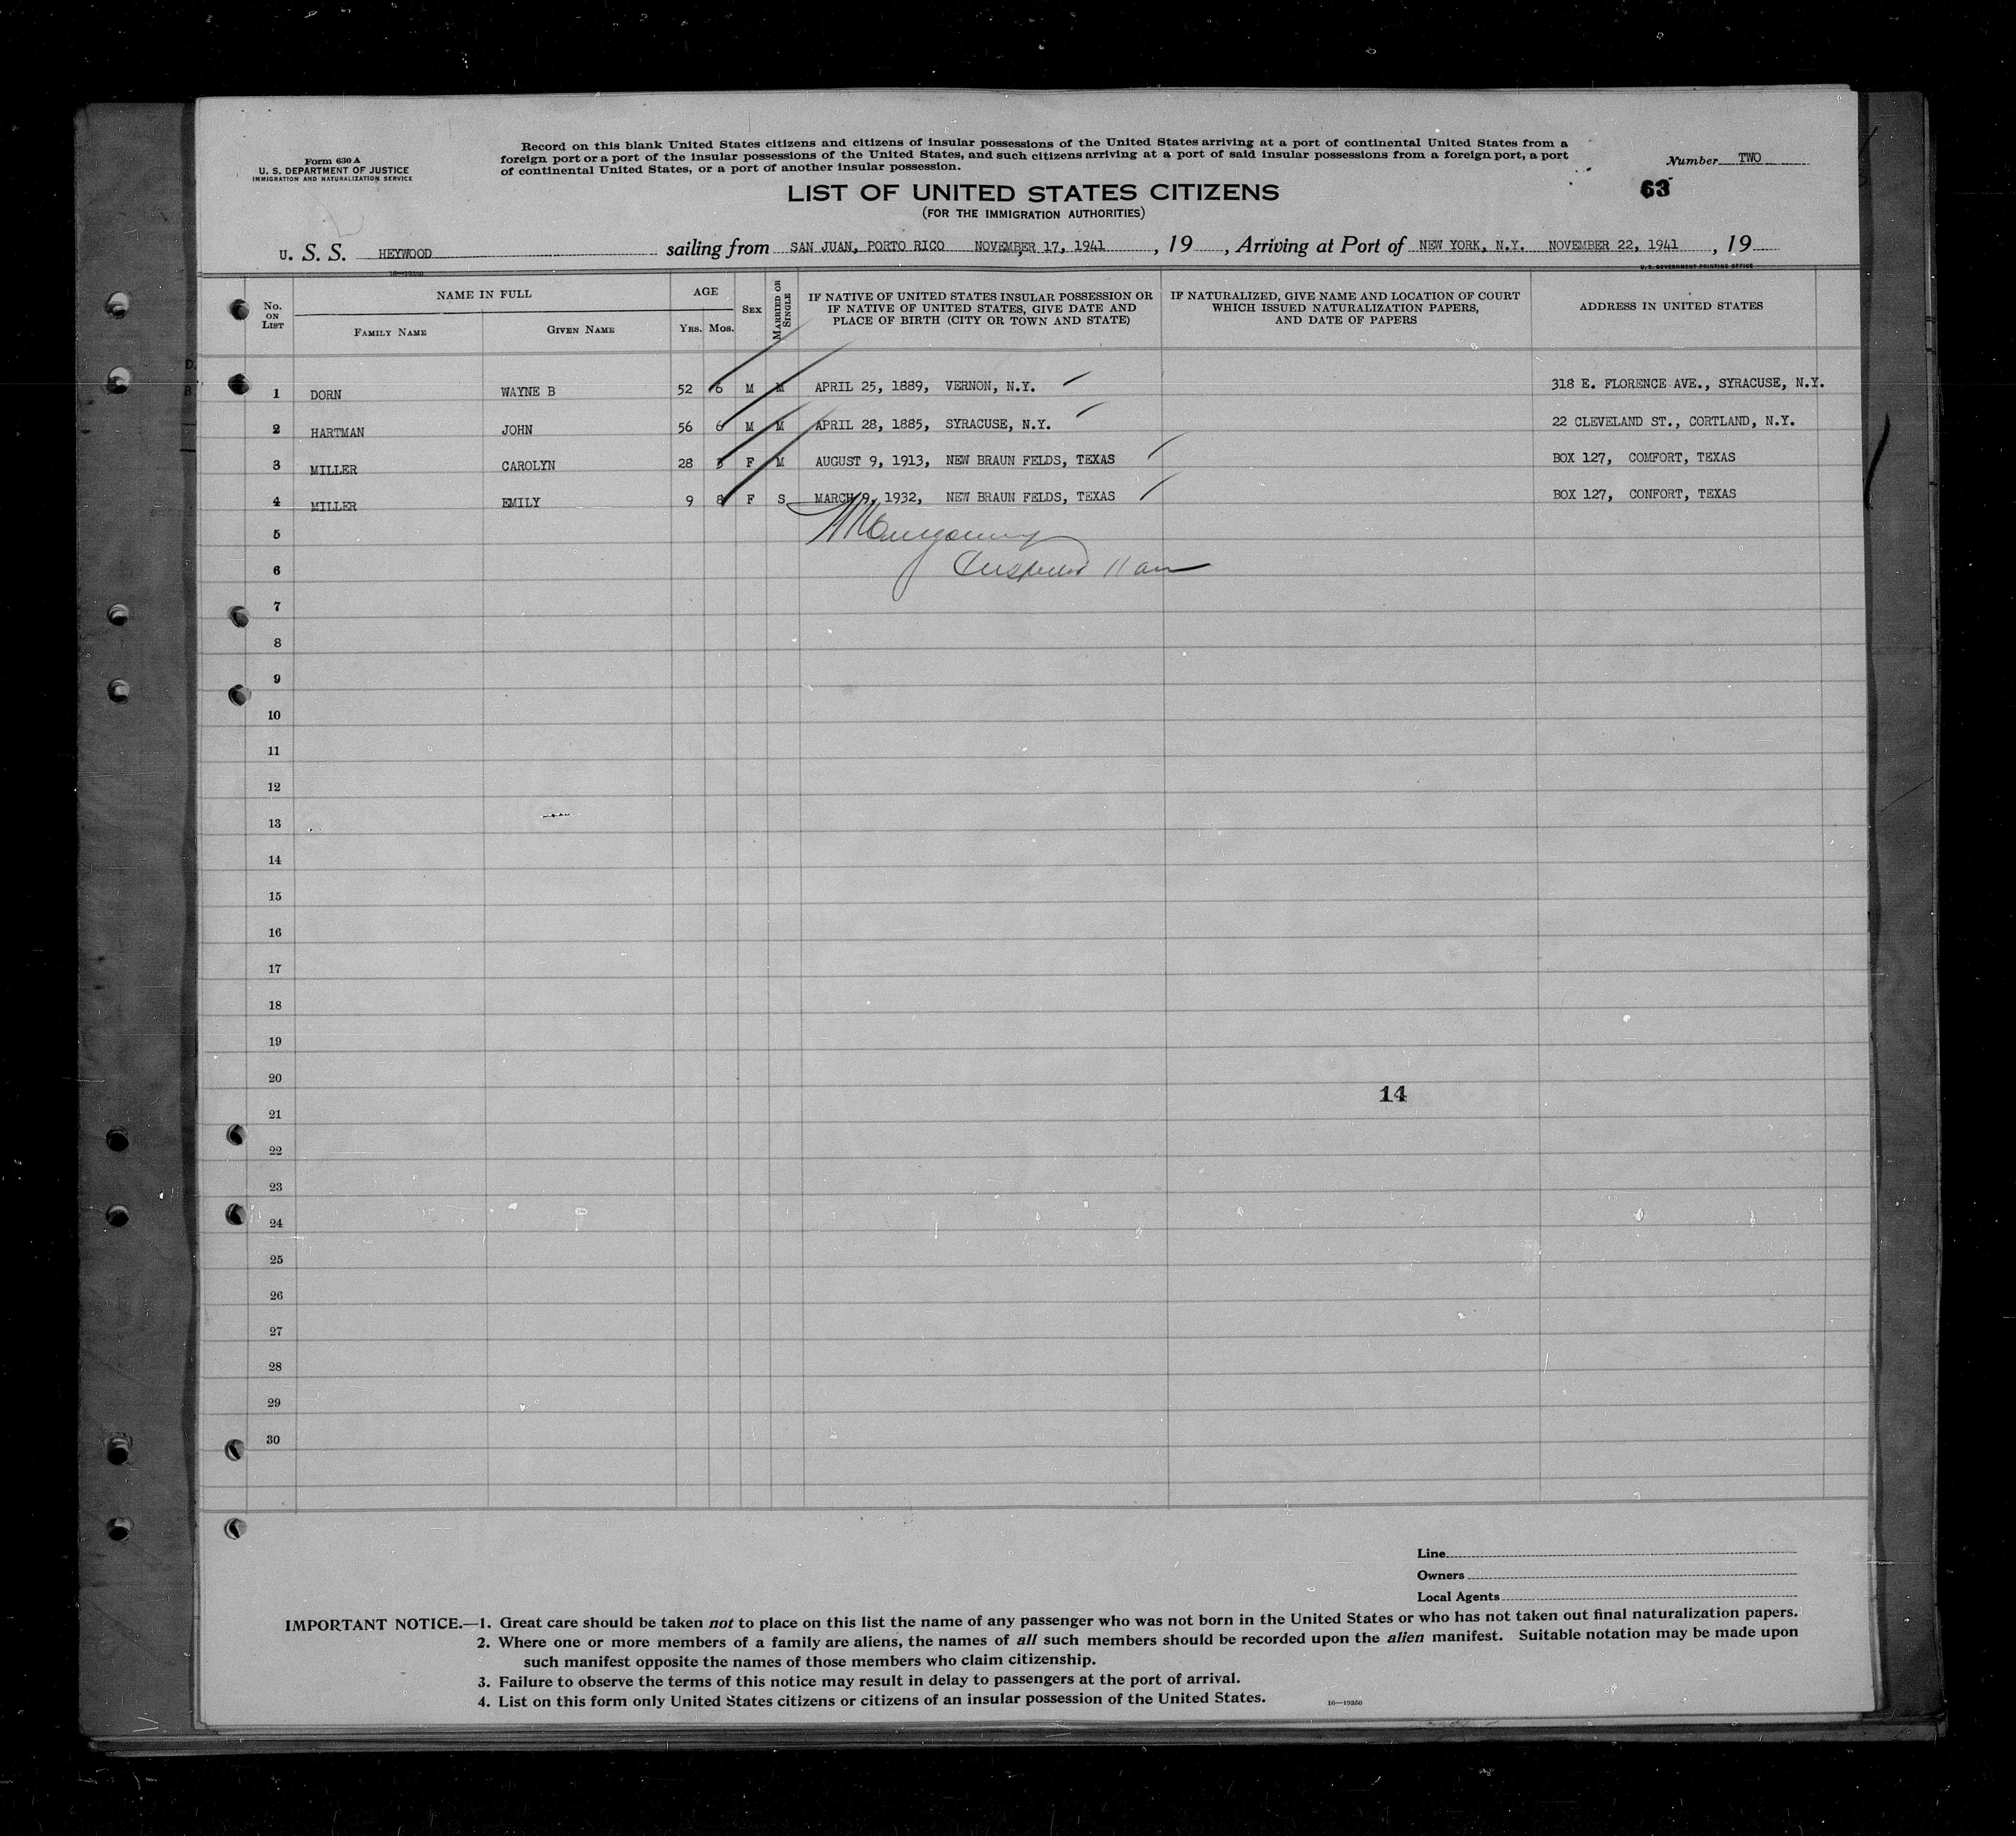 Form 630 A
U. S. DEPARTMENT OF JUSTICE
IMMIGRATION AND NATURALIZATION SERVICE
Record on this blank United States citizens and citizens of insular possessions of the United States arriving at a port of continental United States from a
foreign port or a port of the insular possessions of the United States, and such citizens arriving at a port of said insular possessions from a foreign port, a port
of continental United States, or a port of another insular possession.
Number TWO
63
LIST OF UNITED STATES CITIZENS
(FOR THE IMMIGRATION AUTHORITIES)
U. S. S. HEYWOOD sailing from SAN JUAN, PORTO RICO NOVEMBER 17, 1941, 19 , Arriving at Port of NEW YORK, N.Y. NOVEMBER 22, 1941, 19
16—19350
U.S. GOVERNMENT PRINTING OFFICE
No. ON LIST
NAME IN FULL
FAMILY NAME GIVEN NAME
AGE
YRS. MOS.
SEX
MARRIED OR SINGLE
IF NATIVE OF UNITED STATES INSULAR POSSESSION OR
IF NATIVE OF UNITED STATES, GIVE DATE AND
PLACE OF BIRTH (CITY OR TOWN AND STATE)
IF NATURALIZED, GIVE NAME AND LOCATION OF COURT
WHICH ISSUED NATURALIZATION PAPERS,
AND DATE OF PAPERS
ADDRESS IN UNITED STATES
1 DORN WAYNE B 52 6 M M APRIL 25, 1889, VERNON, N.Y. 318 E. FLORENCE AVE., SYRACUSE, N.Y.
2 HARTMAN JOHN 56 6 M M APRIL 28, 1885, SYRACUSE, N.Y. 22 CLEVELAND ST., CORTLAND, N.Y.
3 MILLER CAROLYN 28 3 F M AUGUST 9, 1913, NEW BRAUN FELDS, TEXAS BOX 127, COMFORT, TEXAS
4 MILLER EMILY 9 8 F S MARCH 9, 1932, NEW BRAUN FELDS, TEXAS BOX 127, CONFORT, TEXAS
5
6
7
8
9
10
11
12
13
14
15
16
17
18
19
20
14
21
22
23
24
25
26
27
28
29
30
Line
Owners
Local Agents
IMPORTANT NOTICE.—1. Great care should be taken not to place on this list the name of any passenger who was not born in the United States or who has not taken out final naturalization papers.
2. Where one or more members of a family are aliens, the names of all such members should be recorded upon the alien manifest. Suitable notation may be made upon
such manifest opposite the names of those members who claim citizenship.
3. Failure to observe the terms of this notice may result in delay to passengers at the port of arrival.
4. List on this form only United States citizens or citizens of an insular possession of the United States.
16—19350